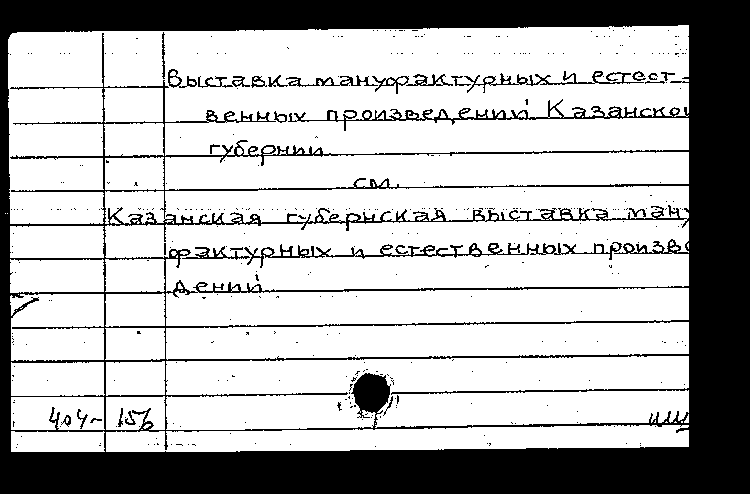 Выставка мануфактурных и естест-
венных произведений Казанской
губернии
см.
Казанская губернская выставка ману
фактурных и естественных произве
дений
404-